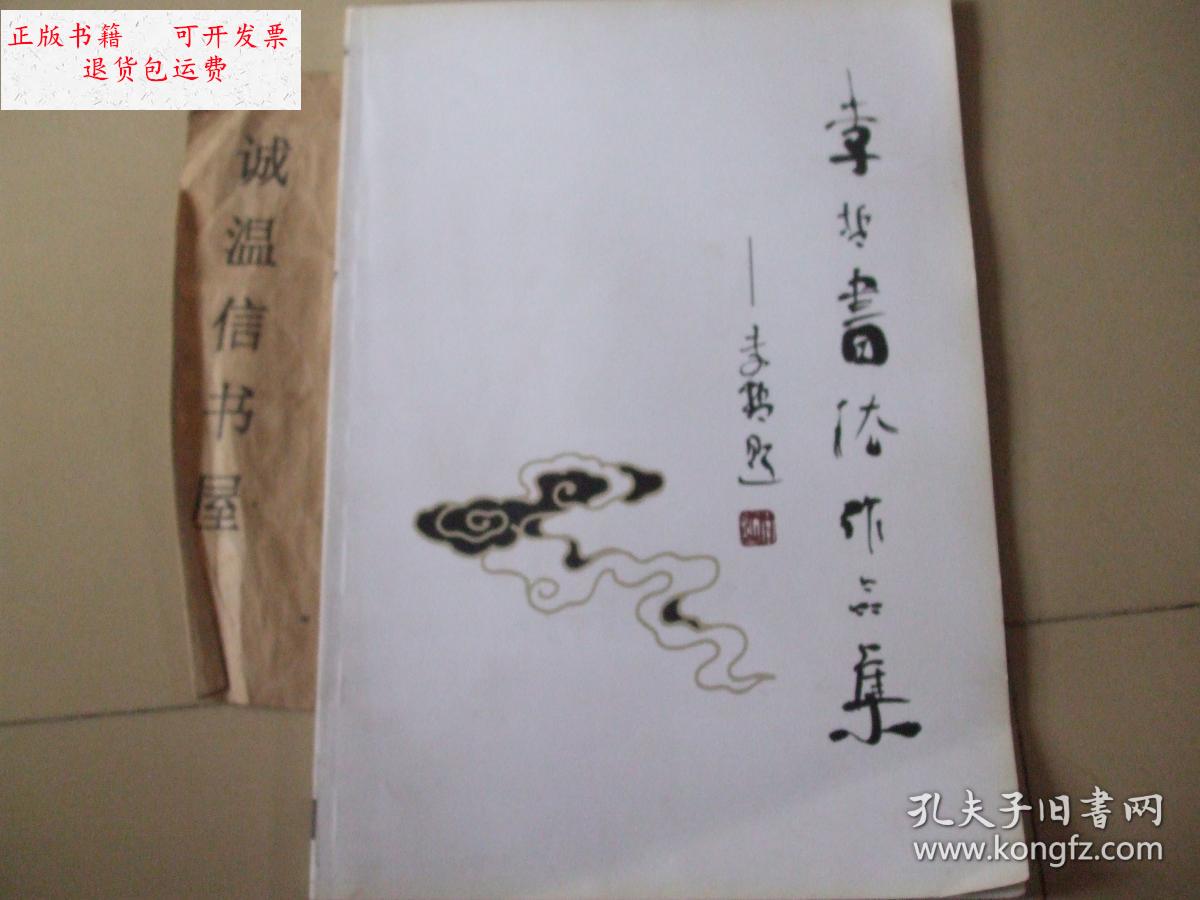 正版书籍 可开发票
退货包运费
诚温信书屋
章哲書法作品集
孔夫子旧書网
www.kongfz.com